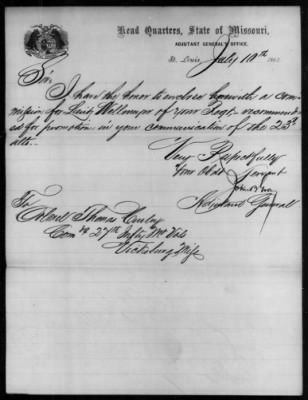 Head Quarters, State of Missouri,
ADJUTANT GENERAL'S OFFICE,
St. Louis, July 10th 186
Sir
I have the honor to enclose herewith a com-
mission for Lieut of your Regt. recommend-
ed for promotion in your communication of the 23d
ults.
Very Respectfully
Your Obdt Servant
John B Gray
Adjutant General
To
Colonel Thomas Curly
Comdg 27th Infty Mo Vols
Vicksburg Miss